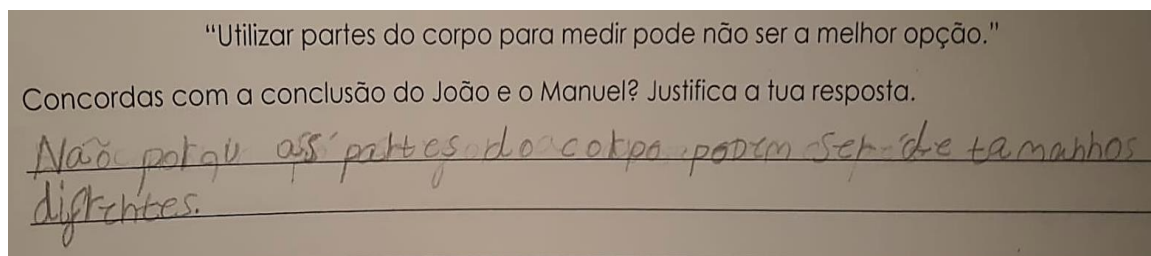 “Utilizar partes do corpo para medir pode não ser a melhor opção.”
Concordas com a conclusão do João e o Manuel? Justifica a tua resposta.
Não porqu as partes do corpo podem ser de tamanhos
difrentes.